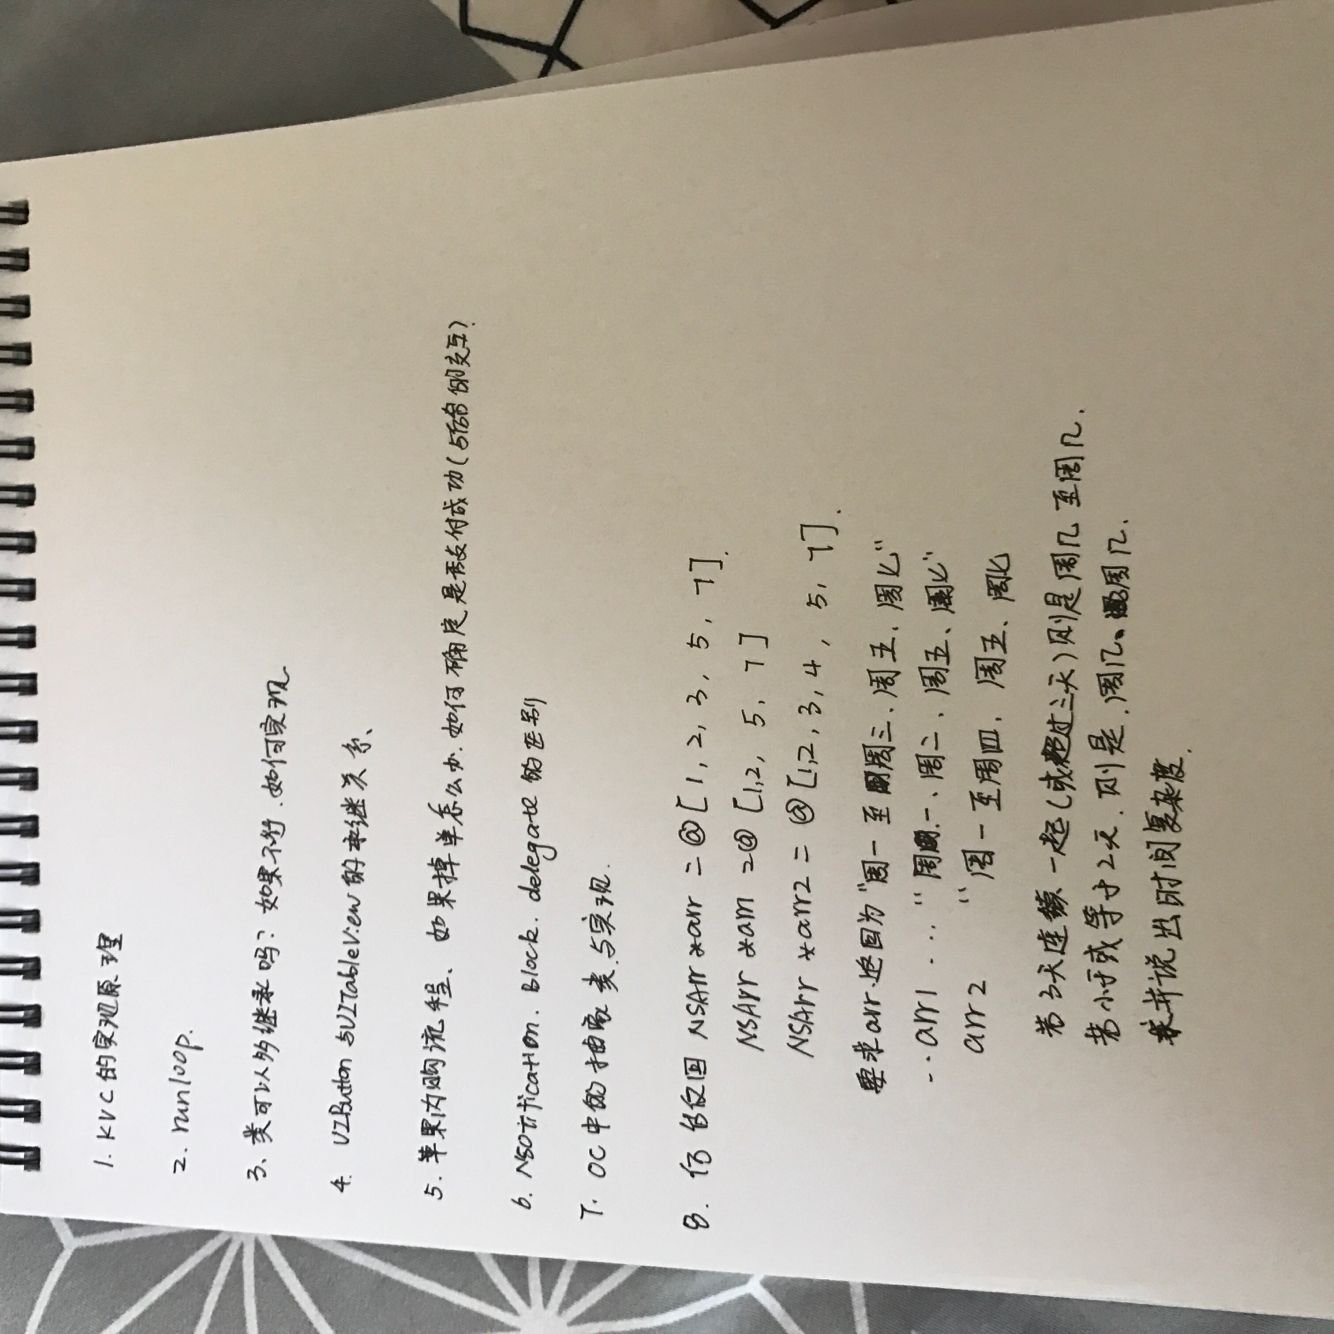 1. KVC的实现原理
2. runloop.
3、类可以多继承吗？如果不行.如何实现
4. UIButton与UITableView的继关系、
5. 苹果内购流程、如果掉单怎么办.如何确定是否支付成功(与后台的交互?
6. NSOtification. Block. delegate的区别
7. OC中的抽象类与实现.
8. 后台返回 NSArr *arr = @[1, 2, 3, 5, 7].
NSArr *arr1 =@[1,2, 5, 7]
NSArr *arr2 = @[1,2,3,4, 5, 7].
要求arr.返回为"周一至周三、周五、周七"
..arr1 ... "周一、周二、周五、周七"
arr2 "周一至周四、周五、周七
若3天连续一起(或超过三天)则是周几至周几.
若小于或等于2天.则是.周几、周几.
并说出时间复杂度.